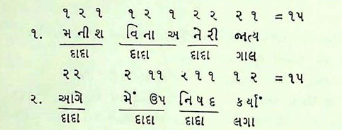 ૧ ૨ ૧ ૧ ૨ ૧ ૨ ૨ ૨ ૧ = ૧૫
૧. મનીશ વિના અ તેરી જાત્ય
દાદા દાદા દાદા ગાલ
૨ ૨ ૨ ૧૧ ૨૧૧ ૧ ૨ = ૧૫
૨. આગે મેં ઉપ નિષદ કર્યાં
દાદા દાદા દાદા લગા